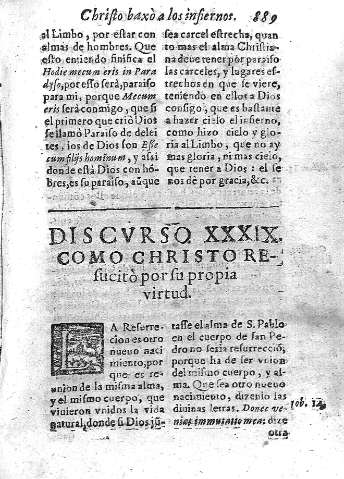 Christo baxò a los infiernos. 889
al Limbo, por estar con
almas de hombres. Que
esto entiendo sinifica el
Hodie mecum eris in Para
dyso, por esso será, paraiso
para mi, porque Mecum
eris será conmigo, que es
el primero que crió Dios
se llamò Paraiso de delei
tes, los de Dios son Esse
cum filijs hominum, y assi
donde està Dios con hõ-
bres, es su paraiso, aũque
sea carcel estrecha, quan
to mas el alma Christia-
na deue tener por paraiso
las carceles, y lugares es-
trechos en que se viere,
teniendo en ellos a Dios
consigo, que es bastante
a hazer cielo el infierno,
como hizo cielo y glo-
ria al Limbo, que no ay
mas gloria, ni mas cielo,
que tener a Dios: el se
nos dé por gracia, &c.
DISCVRSO XXXIX.
COMO CHRISTO RE-
sucitò por su propia
virtud.
LA Resurre-
cion es otro
nueuo naci
miento, por
que es re-
union de la misma alma,
y el mismo cuerpo, que
viuieron vnidos la vida
natural, donde si Dios jũ-
tasse el alma de S. Pablo
en el cuerpo de san Pe-
dro no seria resurrecciõ,
porque ha de ser vnion
del mismo cuerpo, y al-
ma. Que sea otro nueuo
nacimiento, dizenlo las
diuinas letras. Donec ve-
niat immutatio mea: otre
Iob. 14.
otra